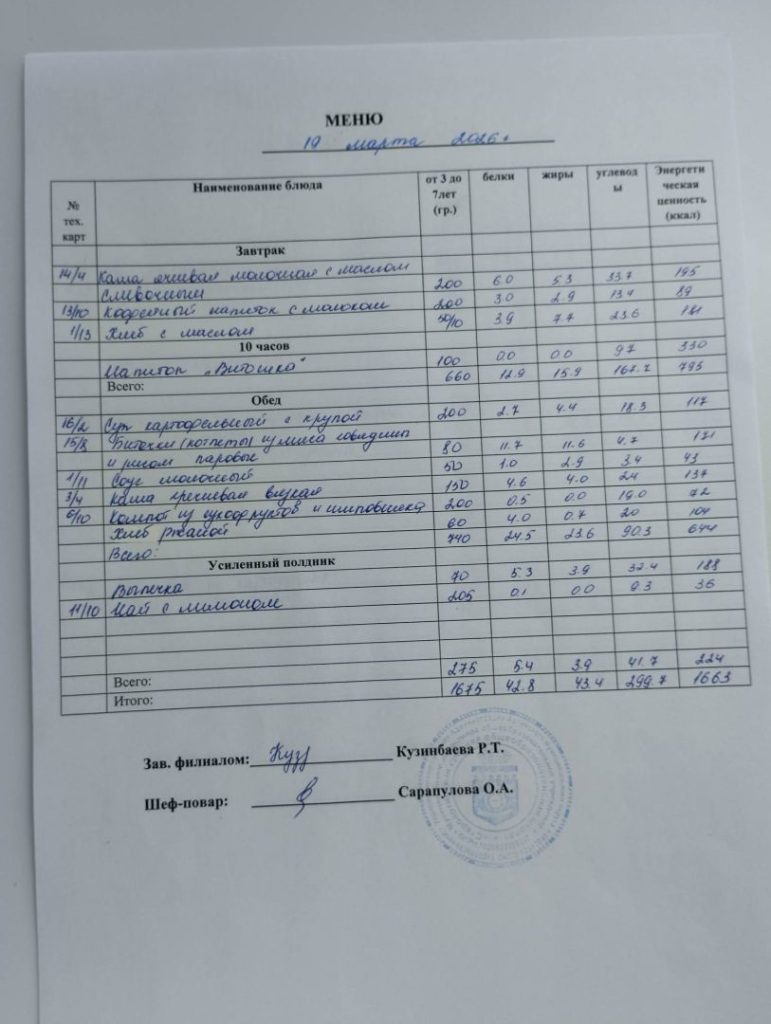 МЕНЮ
19 марта 2026 г
№ тех. карт Наименование блюда от 3 до 7лет (гр.) белки жиры углевод ы Энергети ческая ценность (ккал)
Завтрак
14/4 Каша ячневая молочная с маслом
сливочным 200 6.0 5.3 33.7 195
13/10 Кофейный напиток с молоком 200 3.0 2.9 13.4 89
1/13 Хлеб с маслом 50/10 3.9 7.7 23.6 181
10 часов
Напиток „Витошка" 100 0.0 0.0 97 330
Всего: 660 12.9 15.9 167.7 795
Обед
16/2 Суп картофельный с крупой 200 2.7 4.4 18.3 117
15/8 Биточки (котлеты) из мяса говядины
и рисом паровые 80 11.7 11.6 4.7 171
1/11 Соус молочный 50 1.0 2.9 3.4 43
3/4 Каша гречневая вязкая 150 4.6 4.0 24 137
6/10 Компот из сухофруктов и шиповника 200 0.5 0.0 19.0 72
Хлеб ржаной 60 4.0 0.7 20 104
Всего: 740 24.5 23.6 90.3 644
Усиленный полдник
Выпечка 70 5.3 3.9 32.4 188
11/10 Чай с лимоном 205 0.1 0.0 9.3 36
Всего: 275 5.4 3.9 41.7 224
Итого: 1675 42.8 43.4 299.7 1663
Зав. филиалом: Кузинбаева Р.Т.
Шеф-повар: Сарапулова О.А.